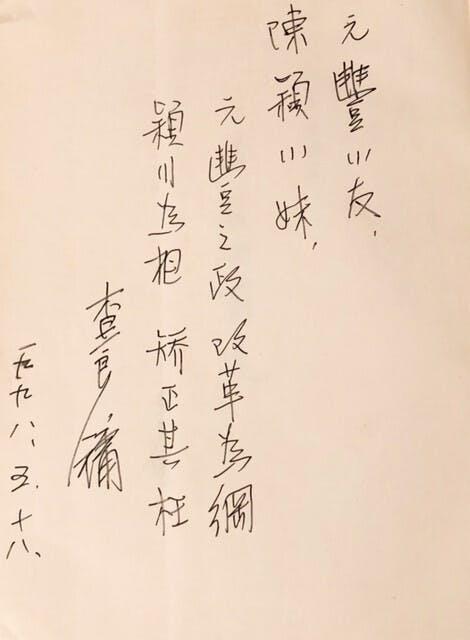 元豐小友,
陳穎小妹,
元豐之政 改革為綱
穎川為相 矯正其枉
查良鏞
一九九八、五、十八、